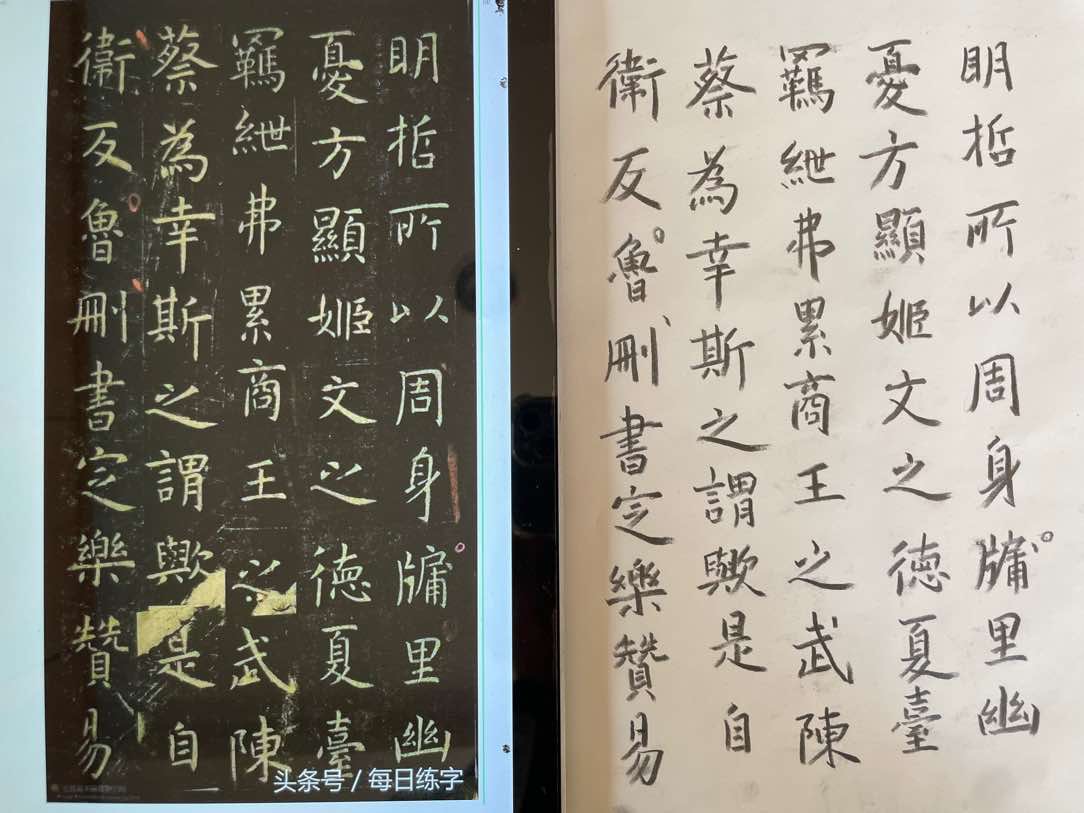 明哲所以周身牖里幽
憂方顯姬文之德夏臺
羈紲弗累商王之武陳
蔡為幸斯之謂歟是自
衛反魯刪書定樂贊易
头条号 / 每日练字
明哲所以周身牖里幽
憂方顯姬文之德夏臺
羈紲弗累商王之武陳
蔡為幸斯之謂歟是自
衛反魯刪書定樂贊易